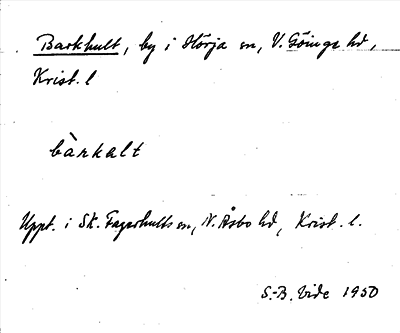 Barkhult, by i Hörja sn, V. Göinge hd,
Krist. l
bàrkalt
Uppt. i Sk. Fagerhults sn, N. Åsbo hd, Krist. l.
S.-B. Vide 1950